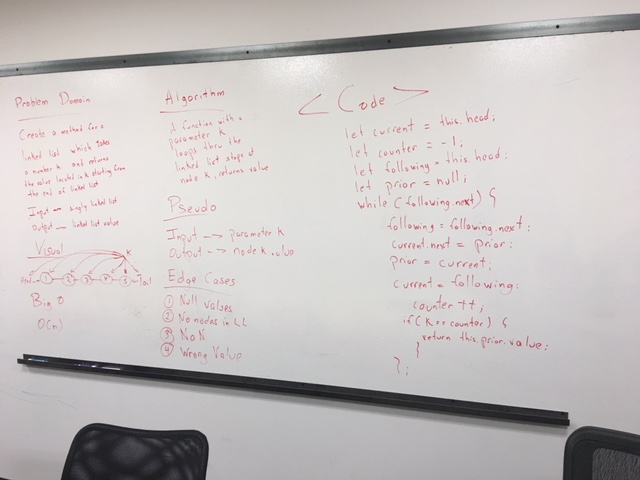 Problem Domain
Create a method for a
linked list which takes
a number k and returns
the value located in k starting from
the end of linked list
Input → singly linked list
Output → linked list value
Visual
k
Head 1 2 3 4 5 Tail
Big O
O(n)
Algorithm
A function with a
parameter k
loops thru the
linked list stops at
node k, returns value
Pseudo
Input --> parameter k
Output --> node k.value
Edge Cases
1 Null Values
2 No nodes in LL
3 NaN
4 Wrong Value
<Code>
let current = this.head;
let counter = -1;
let following = this.head;
let prior = null;
while (following.next) {
following = following.next;
current.next = prior;
prior = current;
current = following;
counter ++;
if (k == counter) {
return this.prior.value;
}
};